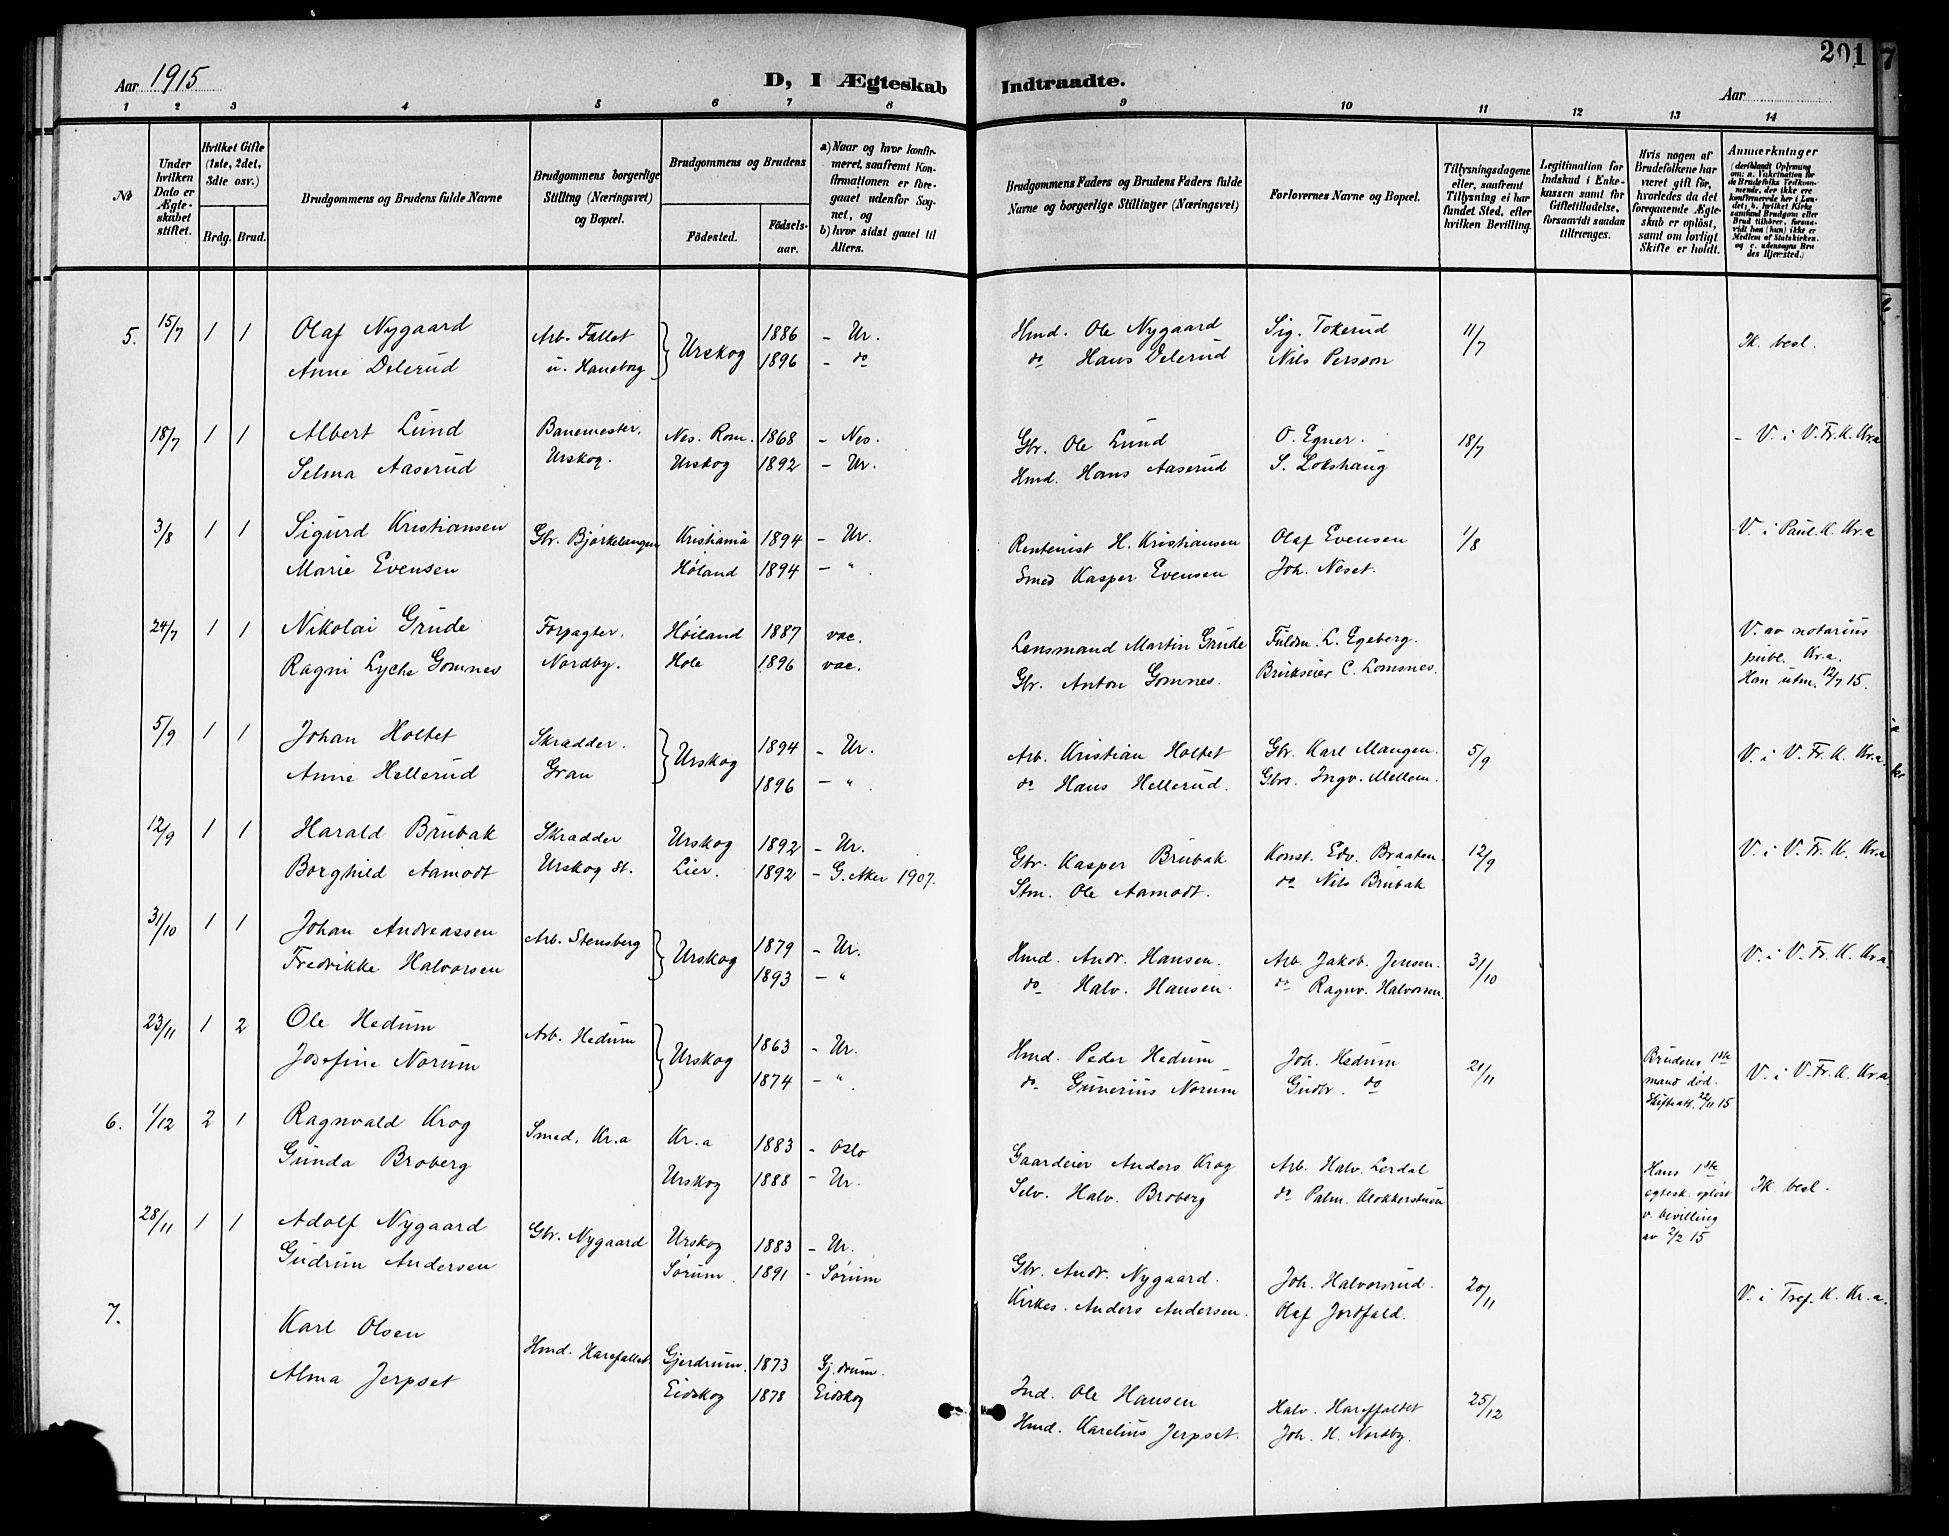 Aar 1915
D, I Ægteskab Indtraadte.
201
Aar
1 2 3 4 5 6 7 8 9 10 11 12 13 14
No
Under hvilken Dato er Ægteskabet stiftet.
Hvilket Gifte (1ste, 2det, 3die osv.)
Brdg. Brud.
Brudgommens og Brudens fulde Navne
Brudgommens borgerlige Stilling (Næringsvei) og Bopæl.
Brudgommens og Brudens
Fødested. Fødselsaar.
a) Naar og hvor konfirmeret, saafremt Konfirmationen er foregaaet udenfor Sognet, og
b) hvor sidst gaaet til Alters.
Brudgommens Faders og Brudens Faders fulde Navne og borgerlige Stillinger (Næringsvei)
Forlovernes Navne og Bopæl.
Tillysningsdagene eller, saafremt Tillysning ei har fundet Sted, efter hvilken Bevilling.
Legitimation for Indskud i Enkekassen samt for Giftetilladelse, forsaavidt saadan tiltrænges.
Hvis nogen af Brudefolkene har været gift før, hvorledes da det foregaaende Ægteskab er opløst, samt om lovligt Skifte er holdt.
Anmærkninger
5. 15/7 1 1 Olaf Nygaard Arb. Fallet Urskog 1886 - Ur. Hmd. Ole Nygaard Sig. Tokerud 11/7 Ik. besl.
Anne Delerud u. Haneborg 1896 - do do Hans Delerud Nils Persson
18/7 1 1 Albert Lund Banemester. Nes. Rom. 1868 - Nes. Gbr. Ole Lund O. Egner. 18/7 - V. i V. Fr. K. Kr.a
Selma Aaserud Urskog. Urskog 1892 - Ur. Hmd. Hans Aaserud S. Lokshaug
3/8 1 1 Sigurd Kristiansen Gbr. Bjørkelangen Kristiania 1894 - Ur. Rentenist H. Kristiansen Olaf Evensen 1/8 - V. i Paul. K. Kr.a
Marie Evensen Høland 1894 - " . Smed Kasper Evensen Joh. Neset.
24/7 1 1 Nikolai Grude Forpagter. Høiland 1887 vac. Lensmand Martin Grude Fuldm. L. Egeberg. V. av notarius
Ragni Lyche Gomnes Nordby. Hole 1896 vac. Gbr. Anton Gomnes. Brukseier C. Lomsnes. publ. Kr.a.
Han utm. 12/7 15.
5/9 1 1 Johan Holtet Skradder. Urskog 1894 - Ur. Arb. Kristian Holtet Gbr. Karl Mangen. 5/9 V. i V. Fr. K. Kr.a.
Anne Hellerud Gran 1896 - " . do Hans Hellerud. Gbrs. Ingv. Mellem.
12/9 1 1 Harald Brubak Skradder Urskog 1892 - Ur. Gbr. Kasper Brubak Konst. Edv. Braaten. 12/9 V. i V. Fr. K. Kr.a
Borghild Aamodt Urskog St. Lier. 1892 - G. Aker 1907. Stm. Ole Aamodt. do Nils Brubak
31/10 1 1 Johan Andreassen Arb. Stensberg Urskog 1879 - Ur. Hmd. Andr. Hansen. Arb. Jakob. Jensen. 31/10 V. i V. Fr. K. Kr.a.
Fredrikke Halvorsen 1893 - " do Halv. Hansen. do Ragnv. Halvorsen.
23/11 1 2 Ole Hedum Arb. Hedum Urskog 1863 - Ur. Hmd. Peder Hedum Joh. Hedum 21/11 Brudens 1ste mand död. Skifteatt. 22/11 15 V. i V. Fr. K. Kr.a.
Josefine Norum 1874 - " . do Gunerius Norum Gudbr. do
6. 1/12 2 1 Ragnvald Krog Smed, Kr.a Kr.a 1883 - Oslo Gaardeier Anders Krog Arb. Halv. Lerdal Hans 1ste egtesk. opløst v. bevilling av 2/2 15 Ik besl.
Gunda Broberg Urskog 1888 - Ur. Selv. Halv. Broberg do Palm. Klokkerstuen
28/11 1 1 Adolf Nygaard Gbr. Nygaard Urskog 1883 - Ur. Gbr. Andr. Nygaard. Joh. Halvorsrud. 20/11 V. i Tref. K. Kr.a.
Gudrun Andersen Sørum. 1891 - Sørum Kirkes. Anders Andersen. Olaf Jordfald.
7. Karl Olsen Hmd. Harefallet. Gjerdrum. 1873 Gj.drum. Ind. Ole Hansen Halv. Harefaldet 25/12
Alma Jerpset Eidskog 1878 Eidskog Hmd. Karelius Jerpset. Joh. H. Nordby.